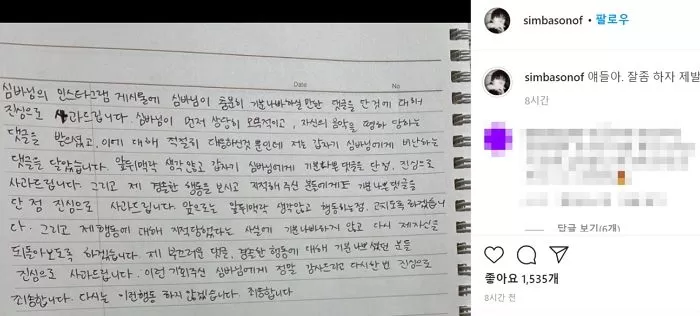 Date
No
심바님의 인스타그램 게시물에 심바님이 충분히 기분나빠하실만한 댓글을 단것에 대해서
진심으로 사과드립니다. 심바님이 먼저 상당히 모욕적이고, 자신의 음악을 폄하 당하는
댓글을 받으셨고, 이에 대해 적절히 대응하신것 뿐인데 저는 갑자기 심바님에게 비난하는
댓글을 달았습니다. 앞뒤맥락 생각않고 갑자기 심바님에게 기분나쁜 댓글을 단점, 진심으로
사과드립니다. 그리고 제 경솔한 행동을 보시고 지적해주신 분들에게도 기분나쁜 댓글을
단 점 진심으로 사과드립니다. 앞으로는 앞뒤맥락 생각않고 행동하는점, 고치도록 하겠습니
다. 그리고 제행동에 대해 지적당했다는 사실에 기분나빠하지 않고 다시 제자신을
되돌아보도록 하겠습니다. 제 부끄러운 댓글, 경솔한 행동에 대해 기분나쁘셨던 분들
진심으로 사과드립니다. 이런 기회주신 심바님에게 정말 감사드리고 다시한번 진심으로
죄송합니다. 다시는 이런행동 하지 않겠습니다. 죄송합니다
simbasonof • 팔로우
simbasonof 얘들아. 잘좀 하자 제발
8시간
답글 보기(6개)
좋아요 1,535개
8시간 전